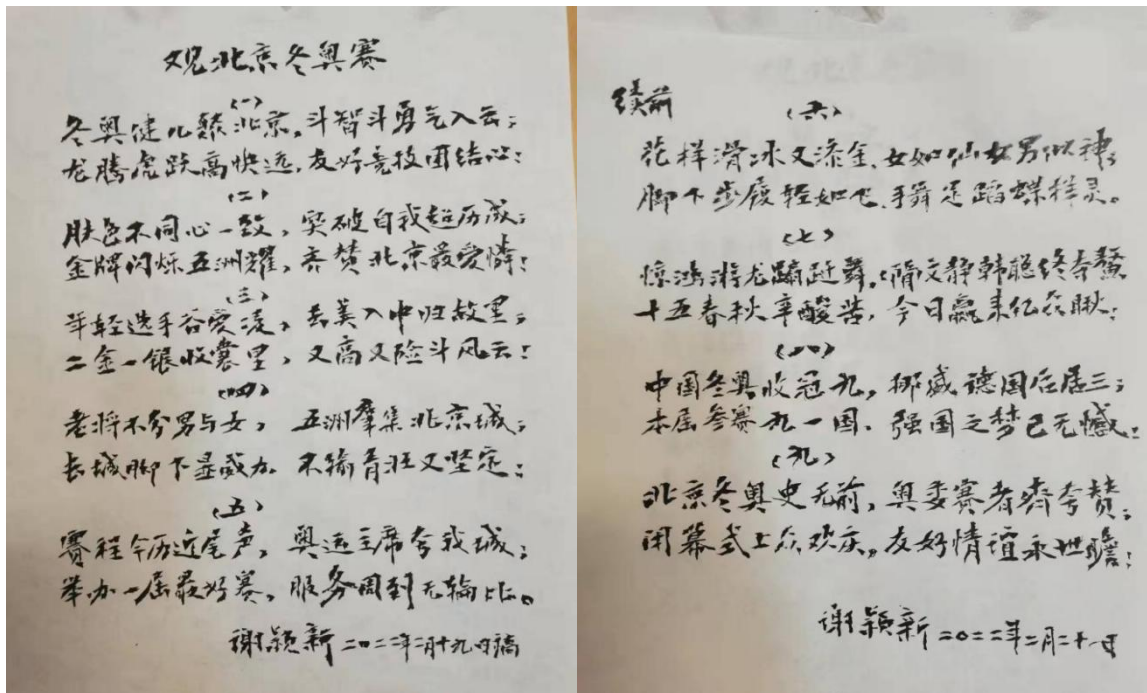 观北京冬奥赛
(一)
冬奥健儿聚北京,斗智斗勇气入云;
龙腾虎跃高快远,友好竞技团结心!
(二)
肤色不同心一致,突破自我超历成;
金牌闪烁五洲耀,齐赞北京最爱怜!
(三)
年轻选手谷爱凌,去美入中归故里;
二金一银收囊里,又高又险斗风云!
(四)
老将不分男与女,五洲群集北京城;
长城脚下显威力 不输青壮又坚定;
(五)
赛程今历近尾声,奥运主席夸我城;
举办一届最好赛,服务周到无伦比。
谢颖新二〇二二年二月十九日稿
续前
(六)
花样滑冰又添金,女如仙女男似神;
脚下步履轻如飞,手舞足蹈蝶样灵。
(七)
惊鸿游龙翩跹舞,隋文静韩聪终夺鳌
十五春秋辛酸苦,今日赢来亿众瞅;
(八)
中国冬奥收冠九,挪威德国后居三;
本届参赛九一国,强国之梦已无憾!
(九)
北京冬奥史无前,奥委赛者齐夸赞;
闭幕式上众欢庆,友好情谊永世瞻!
谢颖新二〇二二年二月二十一日